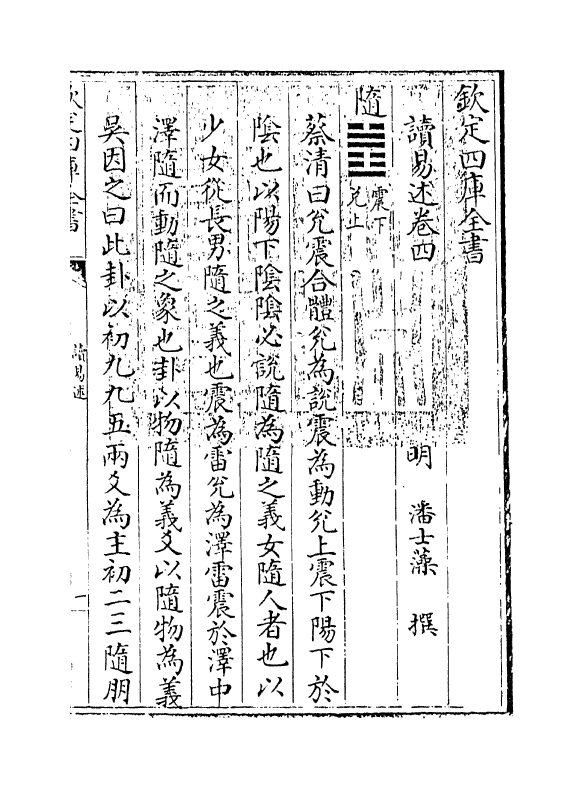 欽定四庫全書
讀易述卷四　明　潘士藻　撰
隨䷐震下兌上
蔡清曰兊震合體兊為説震為動兊上震下陽下於
陰也以陽下陰陰必說隨為隨之義女隨人者也以
少女從長男隨之義也震為雷兊為澤雷震於澤中
澤隨而動隨之象也卦以物隨為義爻以隨物為義
吳因之曰此卦以初九九五兩爻為主初二三隨朋
欽定四庫全書
讀易述
一